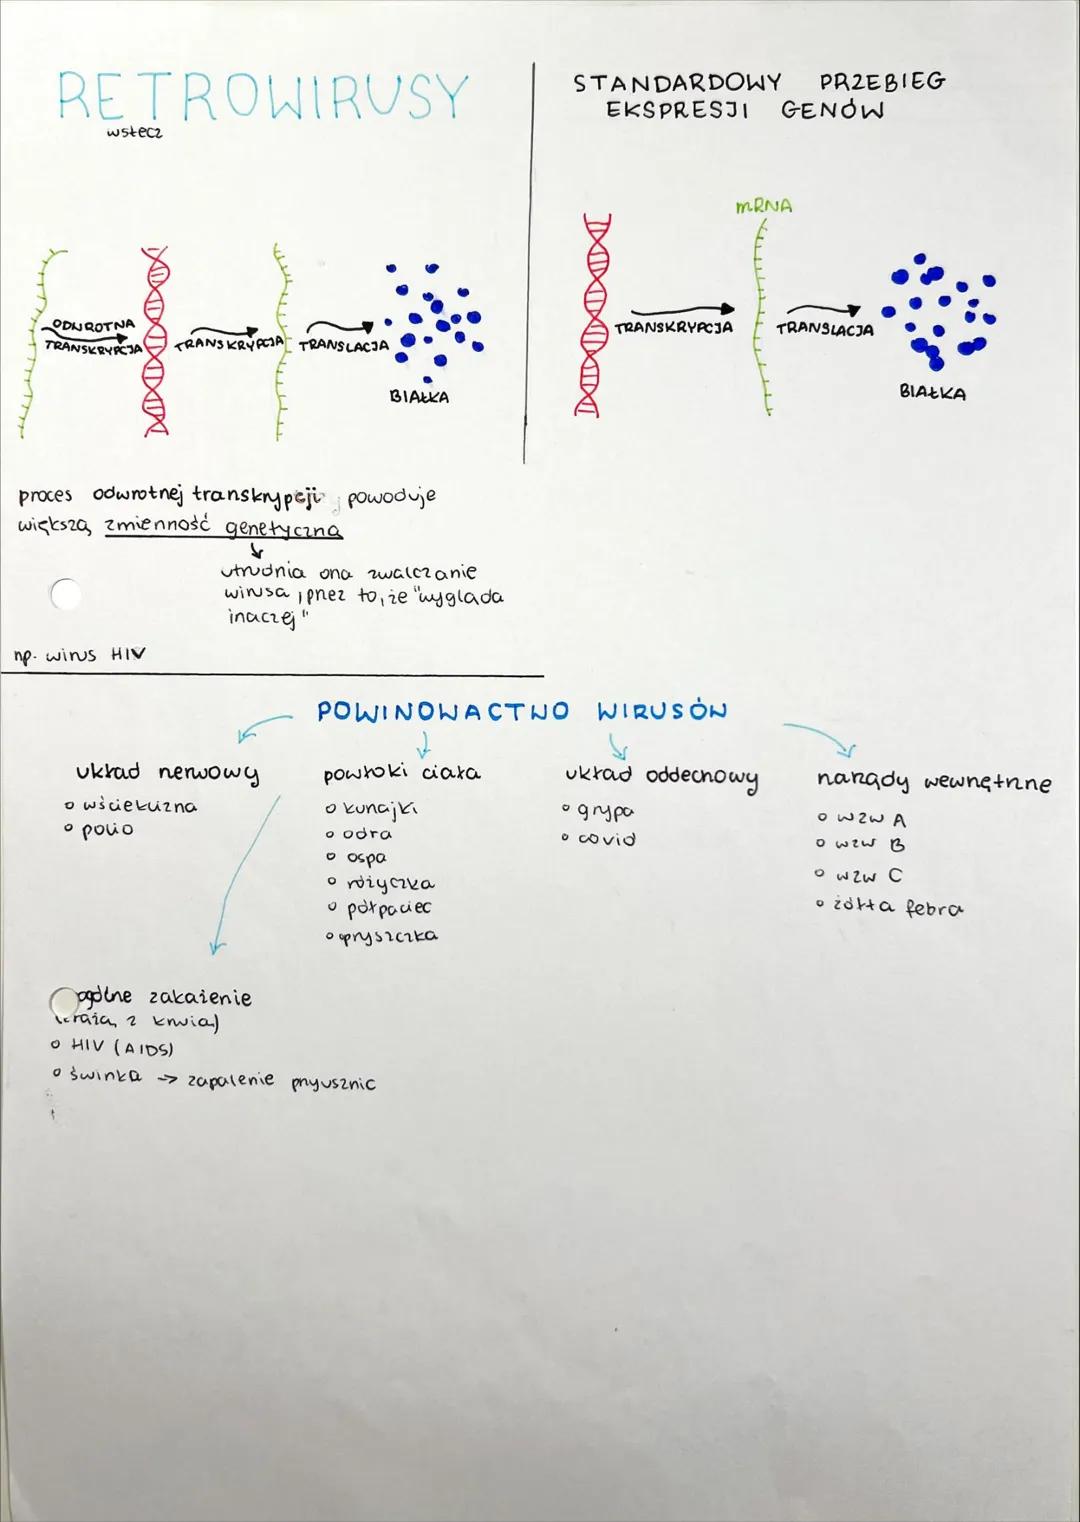 RETROWIRUSY
wstecz
ODWROTNA
TRANSKRYPCJA
TRANSKRYPCJA
TRANSLACJA
BIAŁKA
STANDARDOWY PRZEBIEG
EKSPRESJI GENÓW
mRNA
TRANSKRYPCJA
TRANSLACJA
BIAŁKA
proces odwrotnej transkrypcji powoduje
większą zmienność genetyczną
utrudnia ona zwalczanie
wirusa, przez to, że "wygląda
inaczej"
np. wirus HIV
POWINOWACTWO WIRUSÓW
układ nerwowy
wścieklizna
polio
powłoki ciała
kurzajki
odra
ospa
różyczka
półpaciec
opryszczka
układ oddechowy
grypa
covid
narządy wewnętrzne
WZW A
WZW B
WZW C
żółta febra
ogólne zakażenie
(krążą z krwią)
HIV (AIDS)
świnka -> zapalenie przyusznic